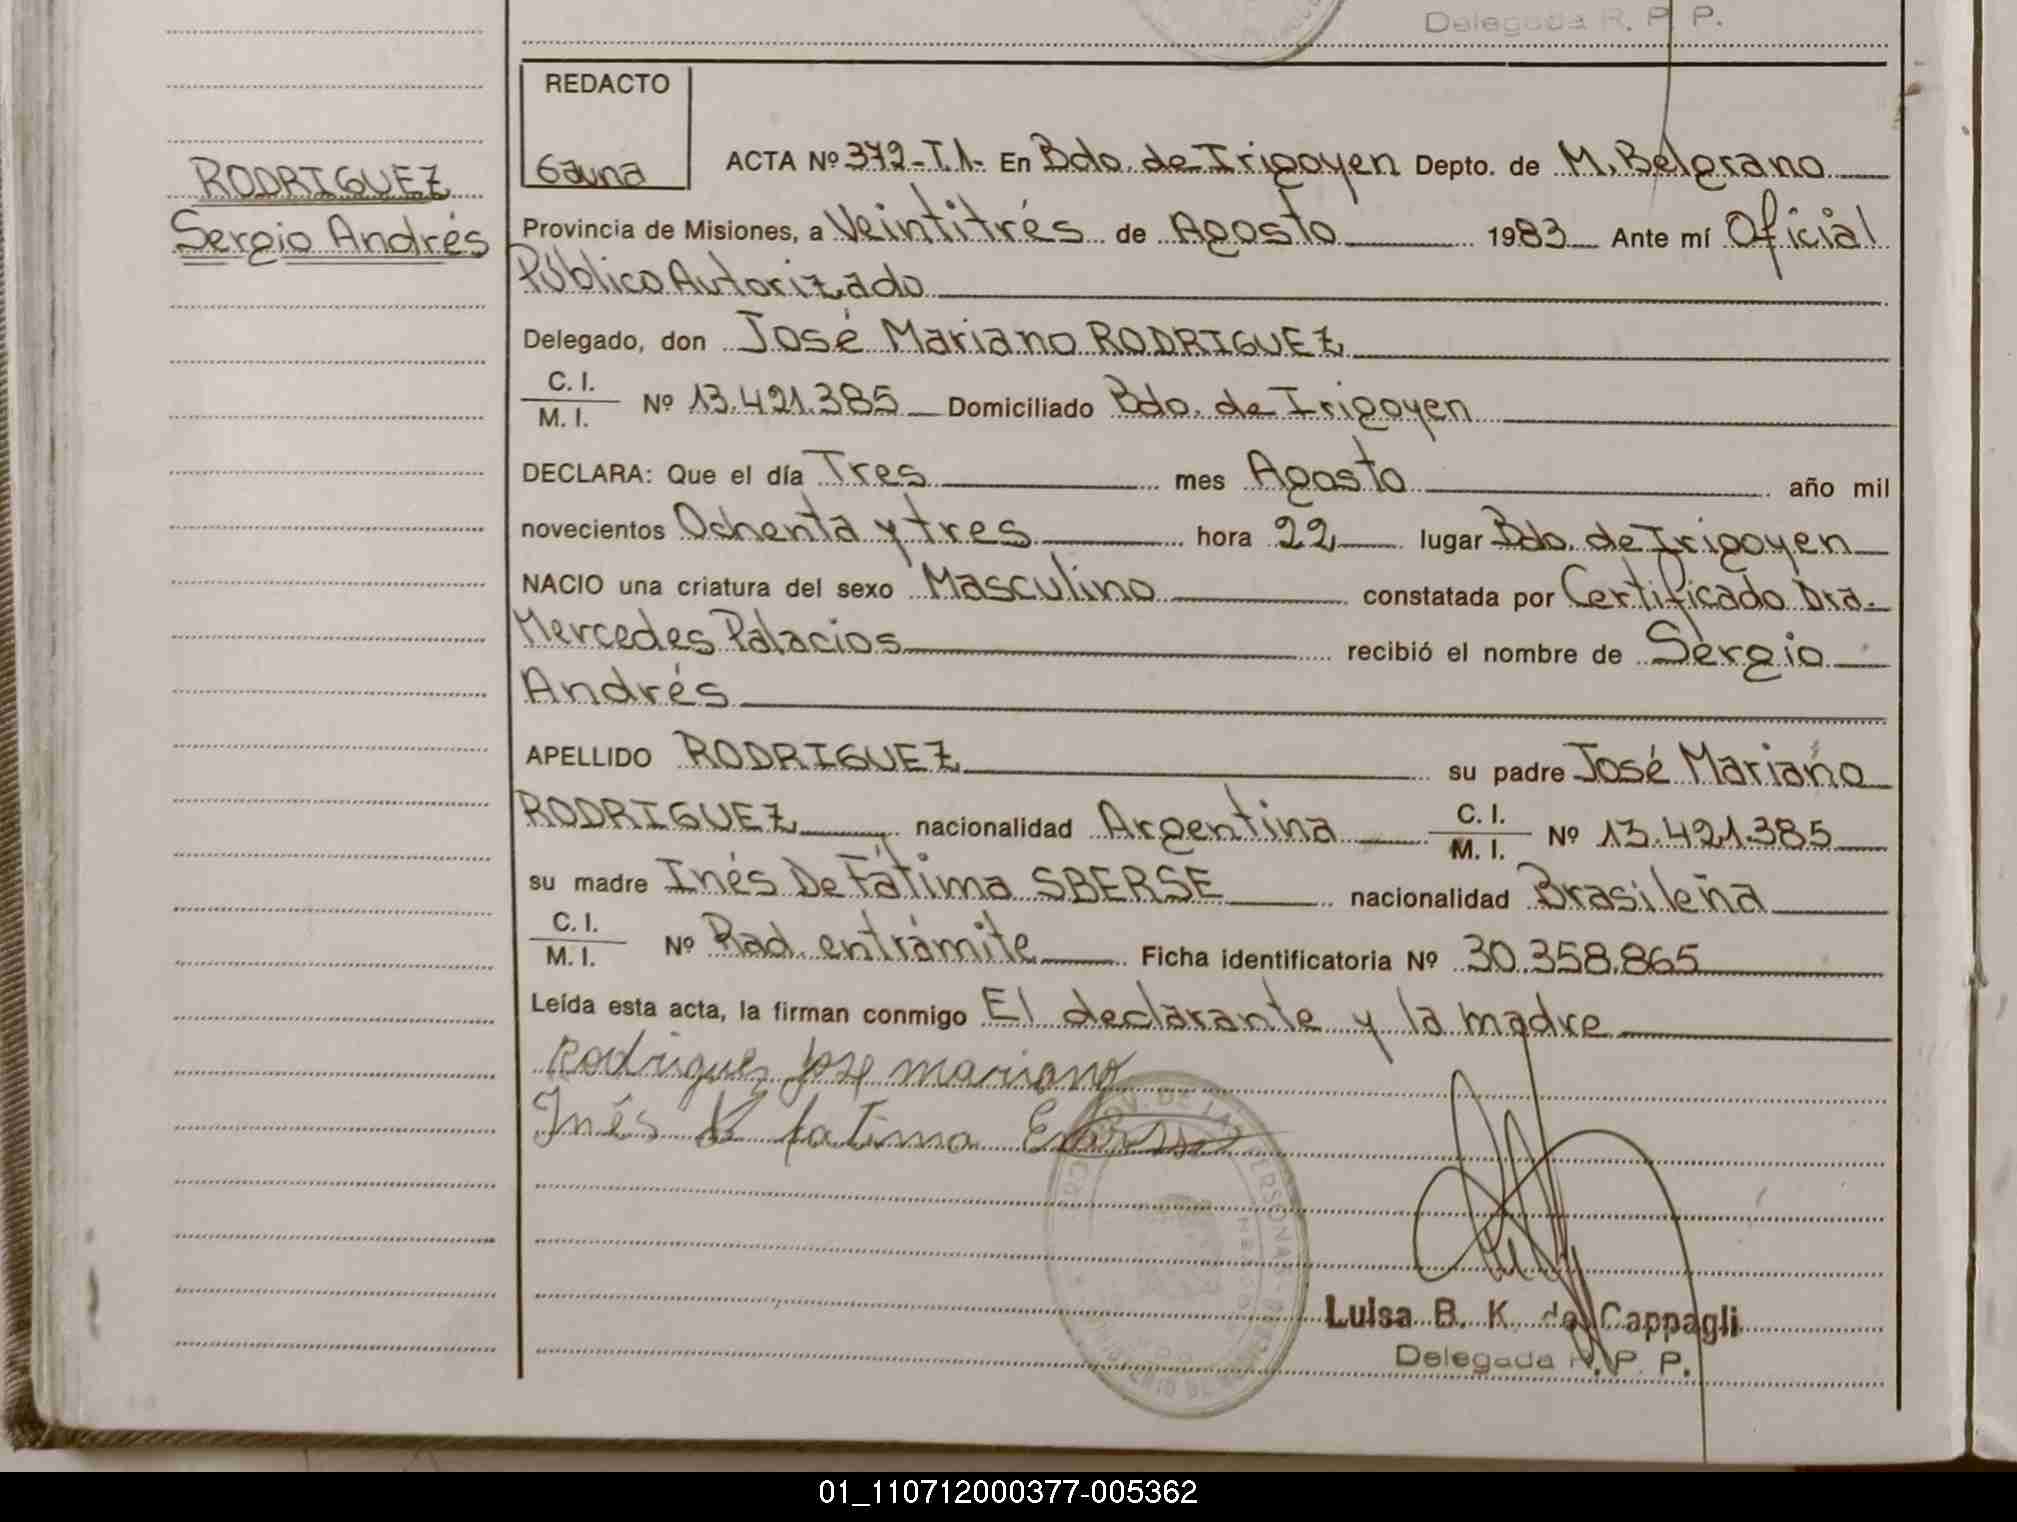 Delegada R. P. P.
REDACTO
Gauna
RODRIGUEZ
Sergio Andrés
ACTA Nº 372-T.1- En Bdo. de Irigoyen Depto. de M. Belgrano
Provincia de Misiones, a Veintitrés de Agosto 1983 Ante mí Oficial
Público Autorizado
Delegado, don José Mariano RODRIGUEZ
C. I.
M. I. Nº 13.421.385 Domiciliado Bdo. de Irigoyen
DECLARA: Que el día Tres mes Agosto año mil
novecientos Ochenta y tres hora 22 lugar Bdo. de Irigoyen
NACIO una criatura del sexo Masculino constatada por Certificado Dra.
Mercedes Palacios recibió el nombre de Sergio
Andrés
APELLIDO RODRIGUEZ su padre José Mariano
RODRIGUEZ nacionalidad Argentina C. I. M. I. Nº 13.421.385
su madre Inés De Fátima SBERSE nacionalidad Brasileña
C. I.
M. I. Nº Rad. entrámite Ficha identificatoria Nº 30.358.865
Leída esta acta, la firman conmigo El declarante y la madre
Rodriguez Jose mariano
Inés de fatima
Luisa B. K. de Cappagli
Delegada R. P. P.
01_110712000377-005362